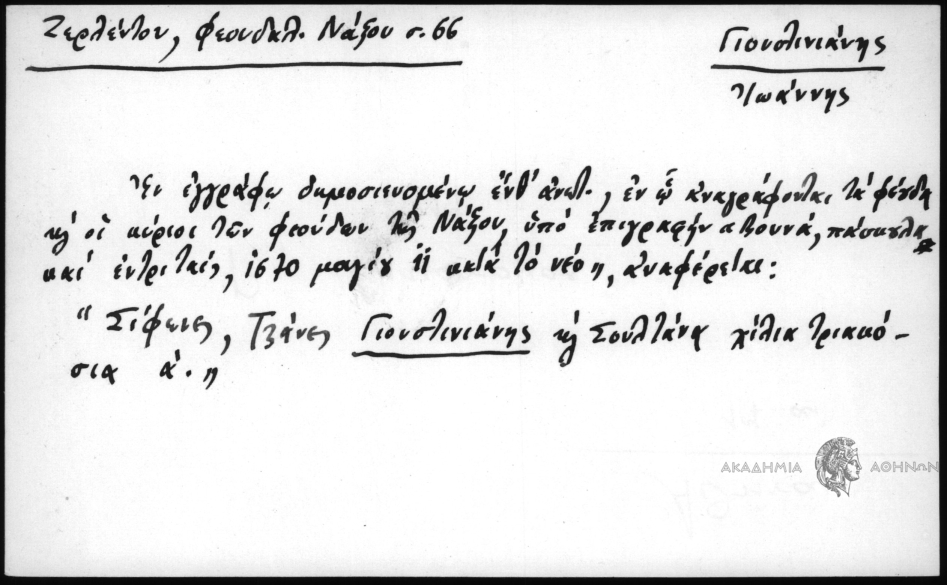 Ζερλέντου, Φεουδαλ. Νάξου σ. 66
Γιουστινιάνης
Ἰωάννης
Ἐν ἐγγράφῳ δημοσιευομένῳ ἔνθ' ἀνωτ., ἐν ᾧ ἀναγράφονται τὰ φέουδα
κὴ οἱ κύριοι τῶν φεούδων τῆς Νάξου, ὑπὸ ἐπιγραφὴν «Βουνά, πάσκουλα
καὶ ἐντριταίς, 1670 μαγίου 11 κατὰ τὸ νέο», ἀναφέρεται:
"Σίφενες, Τζάνες Γιουστινιάνης κὴ Σουλτάνα χίλια τριακό-
σια ἀ. »
ΑΚΑΔΗΜΙΑ ΑΘΗΝΩΝ